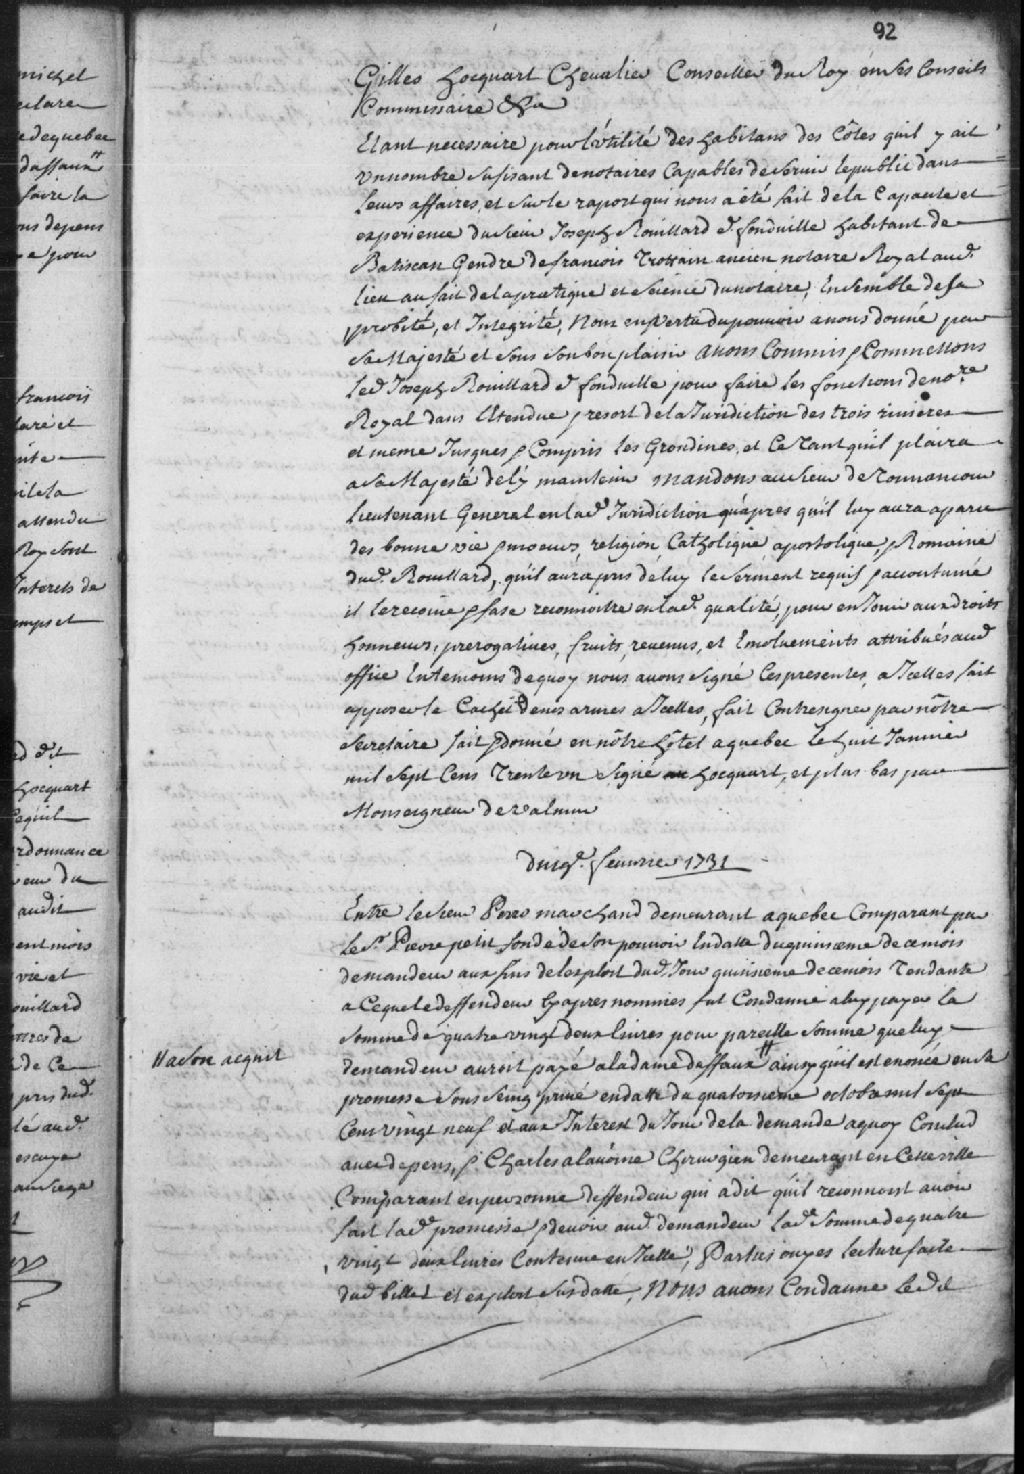 92
Gilles hocquart Chevalier Conseiller du Roy en ses Conseils
Commissaire &ca
Etant necessaire pour l'utilité des habitans des Côtes quil y ait
un nombre sufisant de notaires Capables de servir le public dans
leurs affaires, et sur le raport qui nous a été fait de la Capacité et
experience du sieur Joseph Rouillard d. fonduille habitant de
Batiscan Gendre de francois Trottain ancien notaire Royal aud.
lieu au fait de la pratique et science du notaire, Ensemble de sa
probité, et Integrité, Nous en vertu du pouvoir a nous donné par
sa Majesté et sous son bon plaisir avons Commis & Commettons
led. Joseph Rouillard d. fonduille pour faire les fonctions de no.re
Royal dans l'Etendue & resort de la Juridiction des trois rivieres
et meme Jusques & Compris les Grondines, et Ce tant quil plaira
a sa Majesté de l'y maintenir mandons au sieur de Tonnancour
lieutenant General en lad. Juridiction qu'apres qu'il luy aura aparu
des bonne vie & moeurs, religion Catholique apostolique, & Romaine
dud. Rouillard, qu'il aura pris de luy le serment requis & accoutumé
il le recoive & fase reconnoitre en lad. qualité, pour en Jouir aux droits
honneurs, prerogatives, fruits, revenus, et Emoluements attribués aud
office En temoins de quoy nous avons signé Ces presentes, a Icelles fait
apposer le Cachet de nos armes a Icelles, fait Contresigner par nôtre
secretaire fait & donné en nôtre hôtel a quebec le huit Janvier
mil sept Cens Trente un signé hocquart, et plus bas par
Monseigneur de valmur
du 19e. fevrier 1731
Entre le sieur Perre marchand demeurant a quebec Comparant par
le Sr. Pierre petit fondé de son pouvoir En datte du quinsieme de ce mois
demandeur aux fins de l'exploit dud. Jour quinsieme de ce mois Tendante
a Ceque le deffendeur Cy apres nommés fut Condamné a luy payer la
somme de quatre vingt deux livres pour pareille somme que luy
demandeur auroit payé a la dame daffaux # ainsy qu'il est enoncé en sa
// a son acquit
promesse sous seing privé en datte du quatorsieme octobre mil sept
Cens vingt neuf et aux Interest du Jour de la demande a quoy Conclud
avec depens, & Charles alavoine Chirurgien demeurant en Cette ville
Comparant en personne deffendeur qui a dit qu'il reconnoit avoir
fait lad. promesse & devoir aud. demandeur lad. somme de quatre
vingt deux livres Contenue en Icelle, Parties ouyes lecture faite
dud. billet et exploit susdatté, Nous avons Condamne led. dit
michel
clare
de quebec
daffaux #
faire la
ns depens
e pour
francois
laré et
attendu
Roy sont
Interets de
emps et
hocquart
rdonnance
eur du
audit
ent mois
vie et
ouillard
de Ce
pris dud.
lé aud.
escuyer
au siege